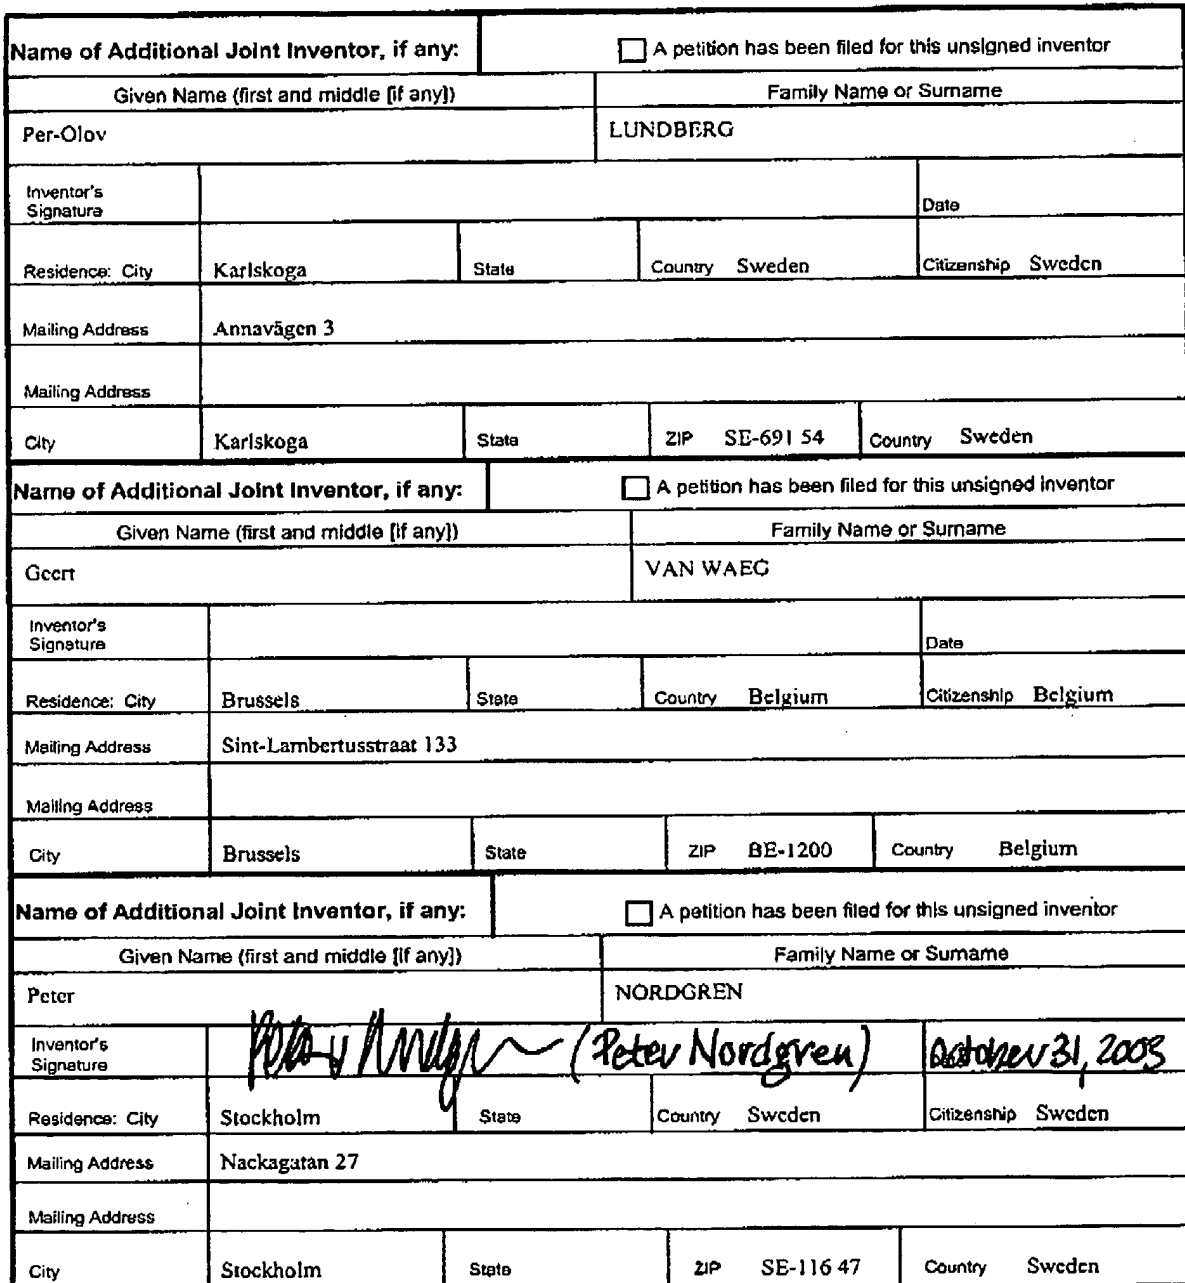 Name of Additional Joint Inventor, if any: A petition has been filed for this unsigned inventor
Given Name (first and middle [if any]) Family Name or Surname
Per-Olov LUNDBERG
Inventor's
Signature Date
Residence: City Karlskoga State Country Sweden Citizenship Sweden
Mailing Address Annavägen 3
Mailing Address
City Karlskoga State ZIP SE-691 54 Country Sweden
Name of Additional Joint Inventor, if any: A petition has been filed for this unsigned inventor
Given Name (first and middle [if any]) Family Name or Surname
Geert VAN WAEG
Inventor's
Signature Date
Residence: City Brussels State Country Belgium Citizenship Belgium
Mailing Address Sint-Lambertusstraat 133
Mailing Address
City Brussels State ZIP BE-1200 Country Belgium
Name of Additional Joint Inventor, if any: A petition has been filed for this unsigned inventor
Given Name (first and middle [if any]) Family Name or Surname
Peter NORDGREN
Inventor's
Signature (Peter Nordgren) October 31, 2003
Residence: City Stockholm State Country Sweden Citizenship Sweden
Mailing Address Nackagatan 27
Mailing Address
City Stockholm State ZIP SE-116 47 Country Sweden